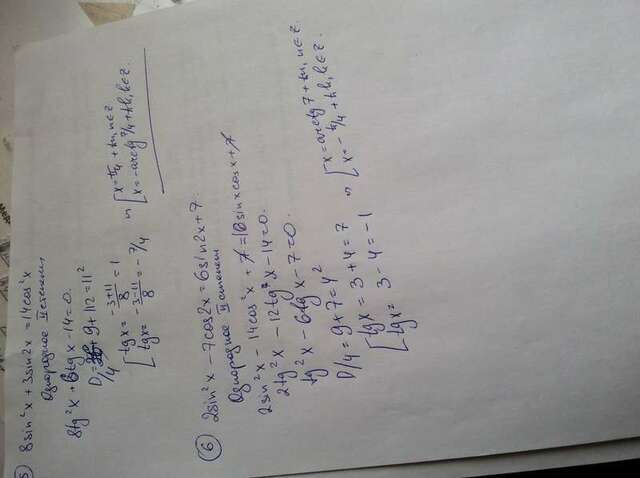 5 8sin²x + 3sin2x = 14cos²x
Однородное II степени
8tg²x + 6tgx - 14 = 0.
D/4 = 9 + 112 = 11²
[ tgx = (-3+11)/8 = 1
tgx = (-3-11)/8 = -7/4
[ x = π/4 + πn, n∈Z
x = -arctg 7/4 + πk, k∈Z.
6 2sin²x - 7cos2x = 6sin2x + 7.
Однородное II степени
2sin²x - 14cos²x + 7 = 16sinxcosx + 7
2tg²x - 12tg²x - 14 = 0.
tg²x - 6tgx - 7 = 0.
D/4 = 9 + 7 = 4²
[ tgx = 3 + 4 = 7
tgx = 3 - 4 = -1
[ x = arctg 7 + πn, n∈Z
x = -π/4 + πk, k∈Z.